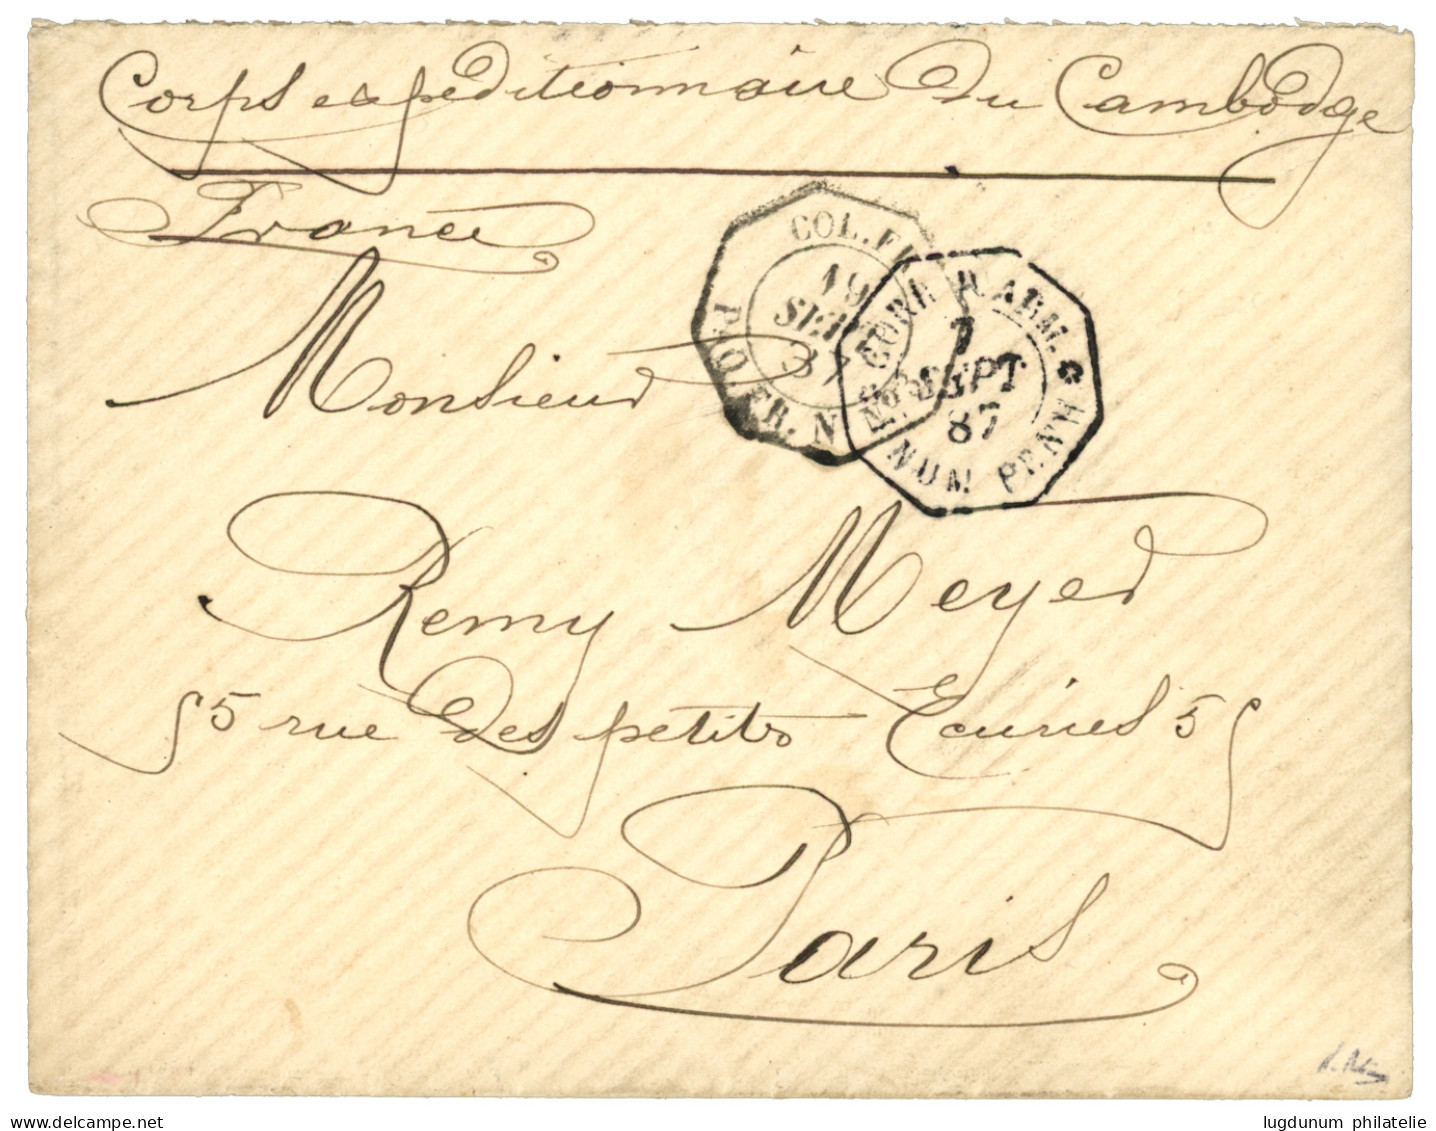 Corps expéditionnaire du Cambodge
France
COL. FR
19
SEPT
87
PAQ. FR. N
CORR. D. ARM.
7
SEPT
87
PNUM PENH
Monsieur
Remy Meyer
55 rue des petits Ecuries 55
Paris
lugdunum philatelie